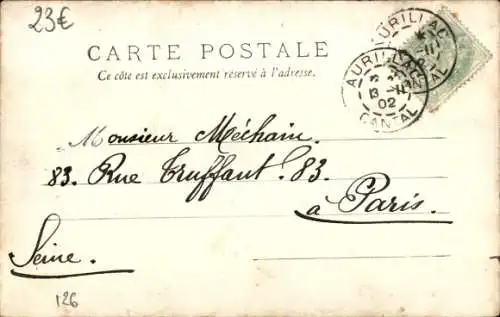 23€
CARTE POSTALE
Ce côté est exclusivement réservé à l'adresse.
AURILLAC
CANTAL
AURILLAC
02
CANTAL
Monsieur Méchain.
83. Rue Truffaut. 83.
à Paris.
Seine.
126